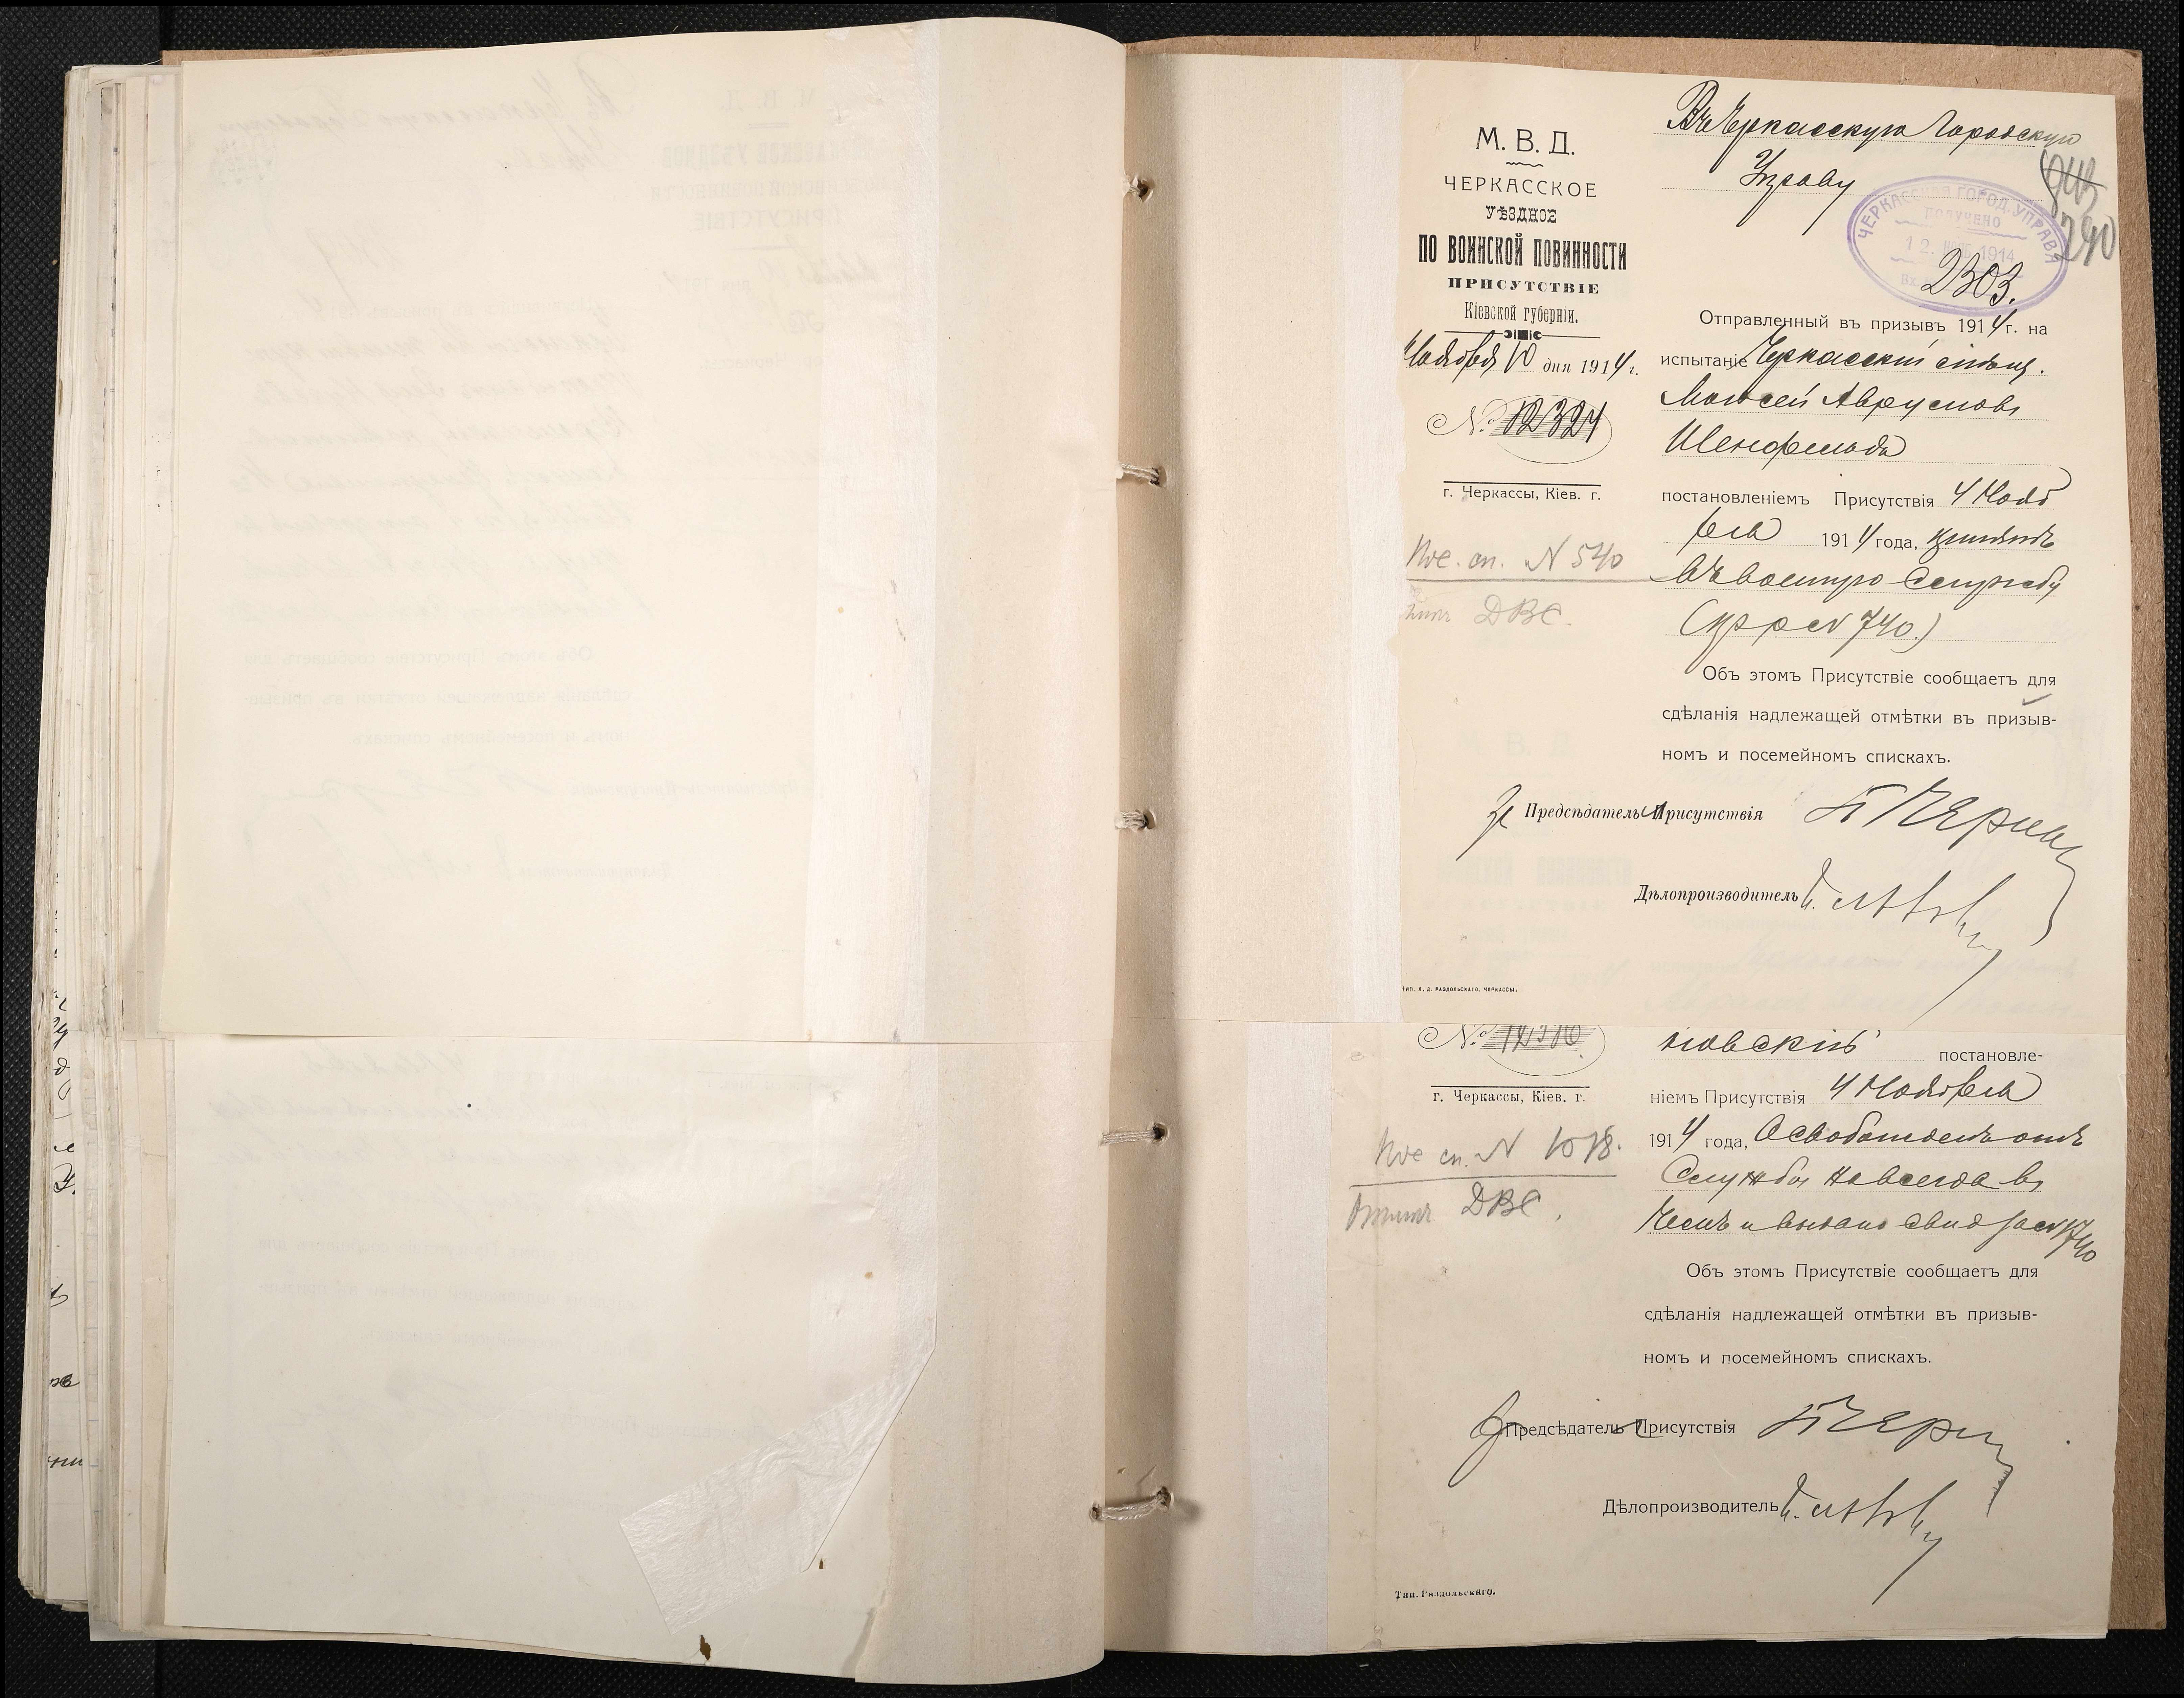 М. В. Д.
ЧЕРКАССКОЕ
УѢЗДНОЕ
ПО ВОИНСКОЙ ПОВИННОСТИ
ПРИСУТСТВІЕ
Кіевской губерніи.
Ноября 10 дня 1914 г.
№ 12324
г. Черкассы, Кіев. г.
Пос. сп. N 540
ДВС.
Въ Черкасскую Городскую
Управу
290
ЧЕРКАССКАЯ ГОРОД. УПРАВА
ПОЛУЧЕНО
12 1914
2303.
Отправленный въ призывъ 1914 г. на
испытаніе Черкасскій
Моисей Аврумовъ
Шенфельдъ
постановленіемъ Присутствія 4 Нояб
ря 1914 года, принятъ
въ военную службу
740.)
Объ этомъ Присутствіе сообщаетъ для
сдѣланія надлежащей отмѣтки въ призыв-
номъ и посемейномъ спискахъ.
Предсѣдатель Присутствія
Дѣлопроизводитель
ТИП. Х. Д. РАЗДОЛЬСКАГО, ЧЕРКАССЫ.
№
г. Черкассы, Кіев. г.
Пос сп. N 1078.
ДВС.
новскій постановле-
ніемъ Присутствія 4 Ноября
1914 года, Освобожденъ отъ
Службы навсегда
и выдано свид
Объ этомъ Присутствіе сообщаетъ для
сдѣланія надлежащей отмѣтки въ призыв-
номъ и посемейномъ спискахъ.
Предсѣдатель Присутствія
Дѣлопроизводитель
Тип. Раздольскаго.